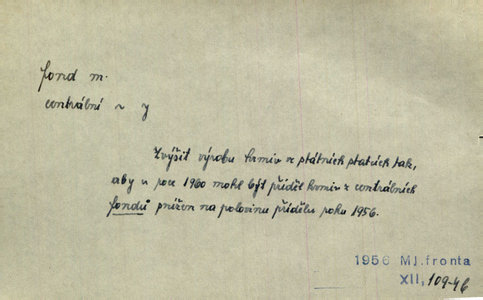 fond m.
centrální ~ y
Zvýšit výrobu krmiv ve státních statcích tak,
aby v roce 1960 mohl být příděl krmiv z centrálních
fondů snížen na polovinu přídělu roku 1956.
1956 Ml.fronta
XII, 109-4 6